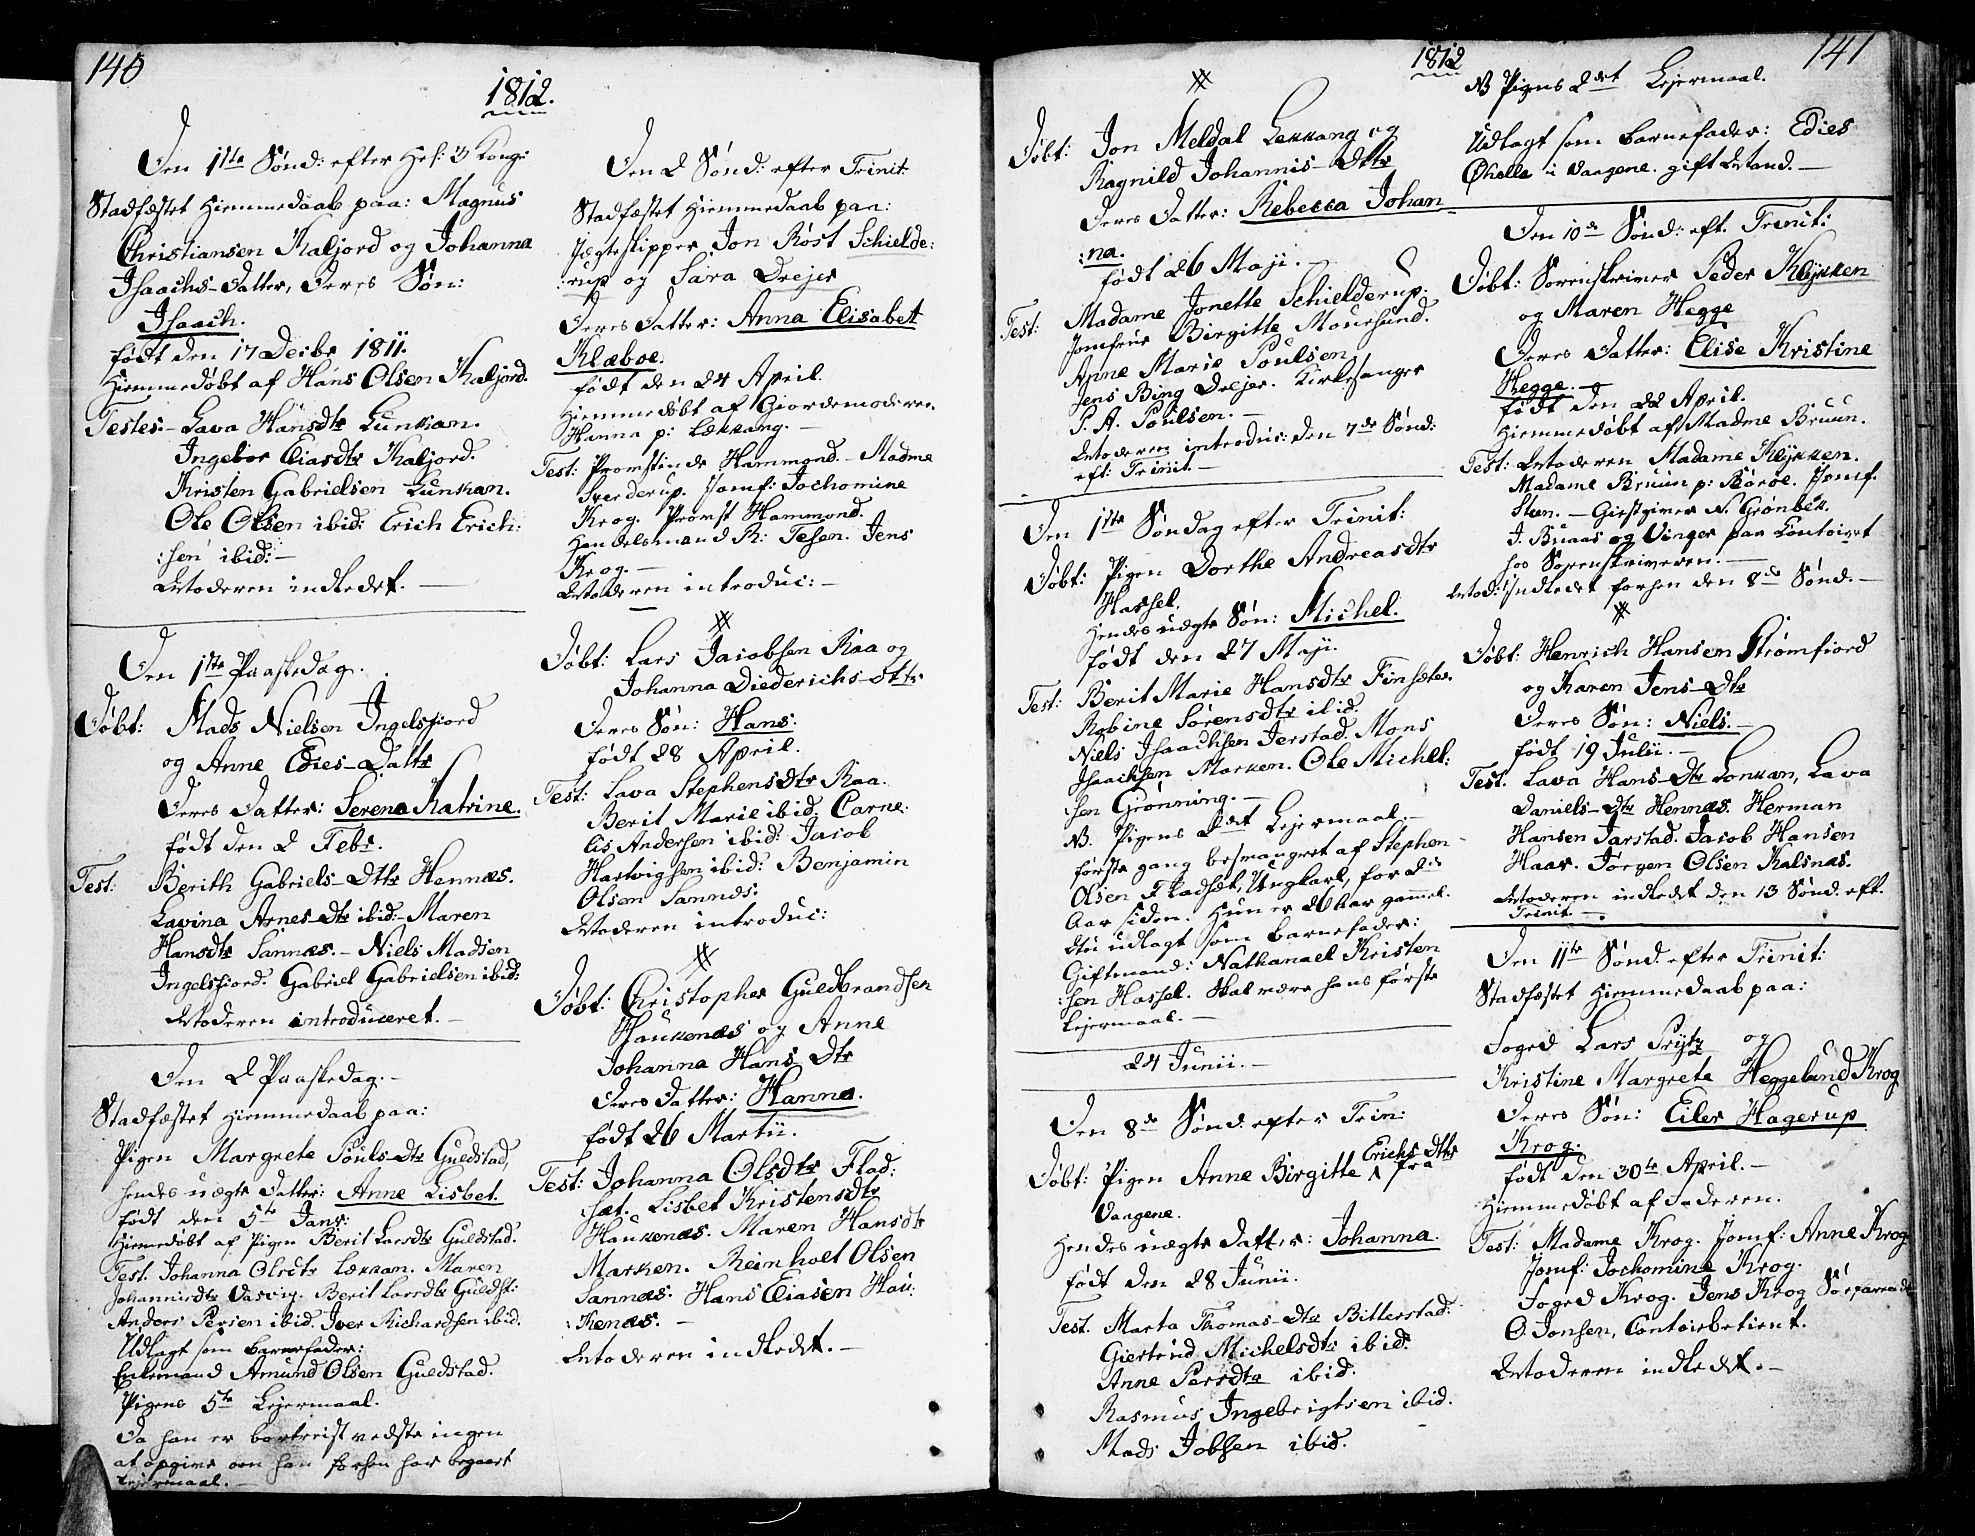 140
1812.
Den 1ste Sønd: efter Hel: 3 Kong:
Stadfæstet Hiemmedaab paa: Magnus
Christiansen Kaljord og Johanna
Isaachs-Datter, Deres Søn:
Isaach.
født den 17 Decbr 1811.
Hiemmedøbt af Hans Olsen Kaljord.
Testes.- Lava Hansdtr Lunkan.
Ingebor Eliasdtr Kaljord.
Kristen Gabrielsen Lunkan.
Ole Olsen ibid: Erich Erich:
:sen ibid:-
Moderen indledet. -
Den 1ste Paaskedag.
Døbt: Mads Nielsen Ingelsfiord
og Anne Edies-Datter
Deres Datter: Serena Katrine.
født den 2 Febr.
Test: Berith Gabriels-Dttr Hennæs.
Lavina Arnes-Dtr ibid:- Maren
Hansdtr Sannæs.- Niels Madsen
Ingelsfiord. Gabriel Gabrielsen ibid:
Moderen introduceret.-
Den 2 Paaskedag.-
Stadfæstet Hiemmedaab paa:
Pigen Margrete Pouls-Dtr Guldstad,
hendes uægte Datter: Anne Lisbet.
født den 5te Janr:
Hiemmedøbt af Pigen Berit Larsdtr Guldstad.
Test. Johanna Olsdtr Lekkan. Maren
Johannisdtr Vasvig. Berit Larsdtr Guldst:
Anders Persen ibid. Iver Richardsen ibid.
Udlagt som Barnefader:
Enkemand Amund Olsen Guldstad.
Pigens 5te Lejermaal.
Da han er bortreist vedste ingen
at opgive om han forhen har begaaet
Lejermaal.-
Den 2 Sønd: efter Trinit:
Stadfæstet Hiemmedaab paa:
Jægteskipper Jon Røst Schielde:
:rup og Sara Drejer
Deres Datter: Anna Elisabet
Klæboe.
født den 24 April.
Hiemmedøbt af Giordemoderen
Hanna p: Lekkang.-
Test: Promstinde Hammond.- Madme
Sverdrup. Jomf: Jochomine
Krog. Promst Hammond.
Handelsmand R: Tesen. Jens
Krog.-
Moderen introduc:-
Døbt: Lars Jacobsen Raa og
Johanna Diederichs-Dttr
Deres Søn: Hans.
født 28 April.
Test: Lava Stephensdtr Raa.
Berit Marie ibid. Corne:
lis Andersen ibid: Jacob
Hartvigsen ibid: Benjamin
Olsen Sannæs.
Moderen introduc:
Døbt: Christopher Guldbrandsen
Haukenæs og Anne
Johanna Hans Dtr
Deres Datter: Hanna.
født 26 Martii.
Test: Johanna Olsdtr Flad:
:sæt. Lisbet Kristensdtr
Haukenæs. Maren Hansdtr
Marken. Reinholt Olsen
Sannæs. Hans Eliasen Hau:
:kenæs.-
Moderen indledt.-
141
1812
Døbt: Jon Meldal Lekkang og
Ragnild Johannis-Dttr
Deres Datter: Rebecca Johan
:na.
født 26 Maji.-
Test: Madame Jonette Schielderup.
Jomfrue Birgitte Mouesund.
Anne Marie Poulsen,
Jens Bing Drejer. Kirkesanger
P. A. Poulsen.-
Moderen introduc: den 7de Sønd:
eft: Trinit.-
Den 1ste Søndag efter Trinit:
Døbt: Pigen Dorthe Andreasdtr
Hassel.
Hendes uægte Søn: Michel.
født den 27 Maji.
Test: Berit Marie Hansdtr Finsæter.
Robine Sørensdtr ibid.
Niels Isaachsen Jerstad. Mons
Isaachsen Marken. Ole Michel:
:sen Grønning.-
NB. Pigens 2det Lejermaal.-
første gang besvangret af Stephen
Olsen Fladsæt, Ungkarl, for 2de
Aar siden. Hun er 26 Aar gammel.
Nu udlagt som Barnefader:
Giftmand: Nathanael Kristen
:sen Hassel. Skal være hans første
Lejermaal.-
24 Junii.-
Den 8de Sønd. efter Trin:
Døbt: Pigen Anne Birgitte Erichs Dttr fra
Vaagene.
Hendes uægte Datter: Johanna.
født den 28 Junii.
Test. Marta Thomas-Dtr Bitterstad.
Giertrud Michelsdtr ibid:
Anne Persdtr ibid.
Rasmus Ingebrigtsen ibid.
Mads Jobsen ibid.
NB Pigens 2det Lejermaal.
Udlagt som Barnefader: Edies
Øhelle i Vaagene. gift Mand.-
Den 10de Sønd: eft. Trinit:
Døbt: Sorenskriver Peder Klykken
og Maren Hegge
Deres Datter: Elise Kristine
Hegge.-
født den 22 April.
Hiemmedøbt af Madme Bruun.
Test: Moderen Madame Klykken.
Madame Bruun p: Børøe. Jomf.
Steen.- Giestgiver N. Grønbek.
J. Buaas og Vinger paa Contoiret
hos Sorenskriveren.-
Mod: Indledet forhen den 8de Sønd.-
Døbt: Henrich Hansen Strømfiord
og Karen Jens-Dtr
Deres Søn: Niels.-
født 19 Julii.-
Test. Lava Hans-Dtr Lonkan, Lava
Daniels-Dtr Hennæs. Herman
Hansen Jarstad. Jacob Hansen
Haar. Jørgen Olsen Kalsnæs.
Moderen indledet den 13 Sønd. eft.
Trinit.-
Den 11te Sønd. efter Trinit:
Stadfæstet Hiemmedaab paa:
Foged Lars Prijtz og
Kristine Margrete Heggelund Krog
Deres Søn: Eiler Hagerup
Krog.
født den 30te April.-
Hiemmedøbt af Faderen.
Test: Madame Krog. Jomf: Anne Krog
Jomf: Jochomine Krog.
Foged Krog. Jens Krog Søefarende
O. Jonsen, Contoirbetient.
Moderen indledet.-